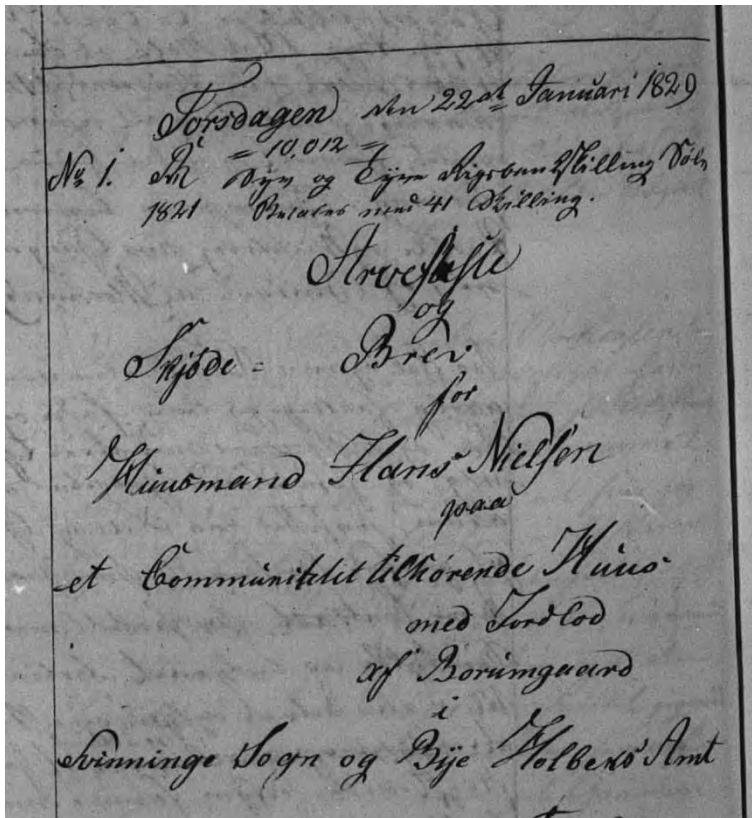 Torsdagen den 22de Januari 1829
= 10,012 =
No 1. Syv og Tyve Rigsbank Skilling Sølv
1821 Betales med 41 Skilling.
Arvefæste
og
Skjøde = Brev
for
Huusmand Hans Nielsen
paa
et Communitetet tilhørende Huus
med Jordlod
af Borumgaard
i
Svinninge Sogn og Bye Holbeks Amt